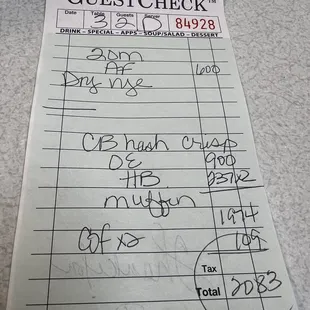 GUESTCHECK™
Date Table Guests Server
32 D 84928
DRINK – SPECIAL – APPS – SOUP/SALAD – DESSERT
20m 600
AF
Dry rye
CB hash crisp
OE 900
HB
muffin
1974
Cof x2 109
Tax
Total 2083